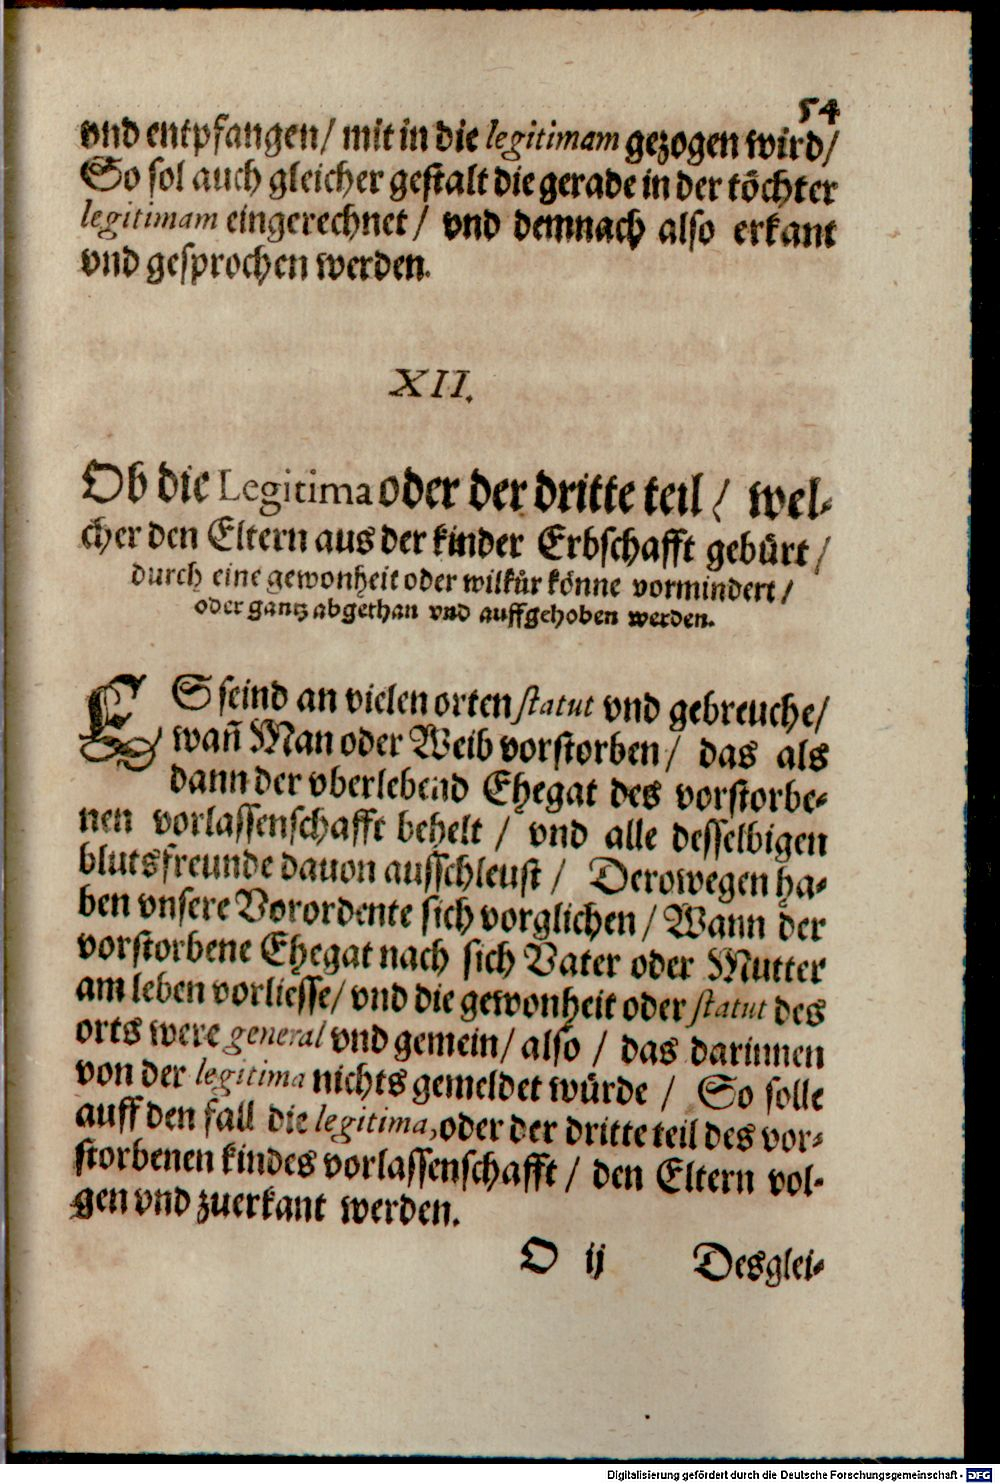 54
vnd entpfangen/ mit in die legitimam gezogen wird/
So sol auch gleicher gestalt die gerade in der töchter
legitimam eingerechnet/ vnd demnach also erkant
vnd gesprochen werden.
XII.
Ob die Legitima oder der dritte teil/ wel-
cher den Eltern aus der kinder Erbschafft gebürt/
durch eine gewonheit oder wilkür könne vormindert/
oder gantz abgethan vnd auffgehoben werden.
ES seind an vielen orten statut vnd gebreuche/
wañ Man oder Weib vorstorben/ das als
dann der vberlebend Ehegat des vorstorbe-
nen vorlassenschafft behelt/ vnd alle desselbigen
blutsfreunde dauon ausschleust/ Derowegen ha-
ben vnsere Vorordente sich vorglichen/ Wann der
vorstorbene Ehegat nach sich Vater oder Mutter
am leben vorliesse/ vnd die gewonheit oder statut des
orts were general vnd gemein/ also/ das darinnen
von der legitima nichts gemeldet würde/ So solle
auff den fall die legitima, oder der dritte teil des vor-
storbenen kindes vorlassenschafft/ den Eltern vol-
gen vnd zuerkant werden.
O ij Desglei-
Digitalisierung gefördert durch die Deutsche Forschungsgemeinschaft - DFG